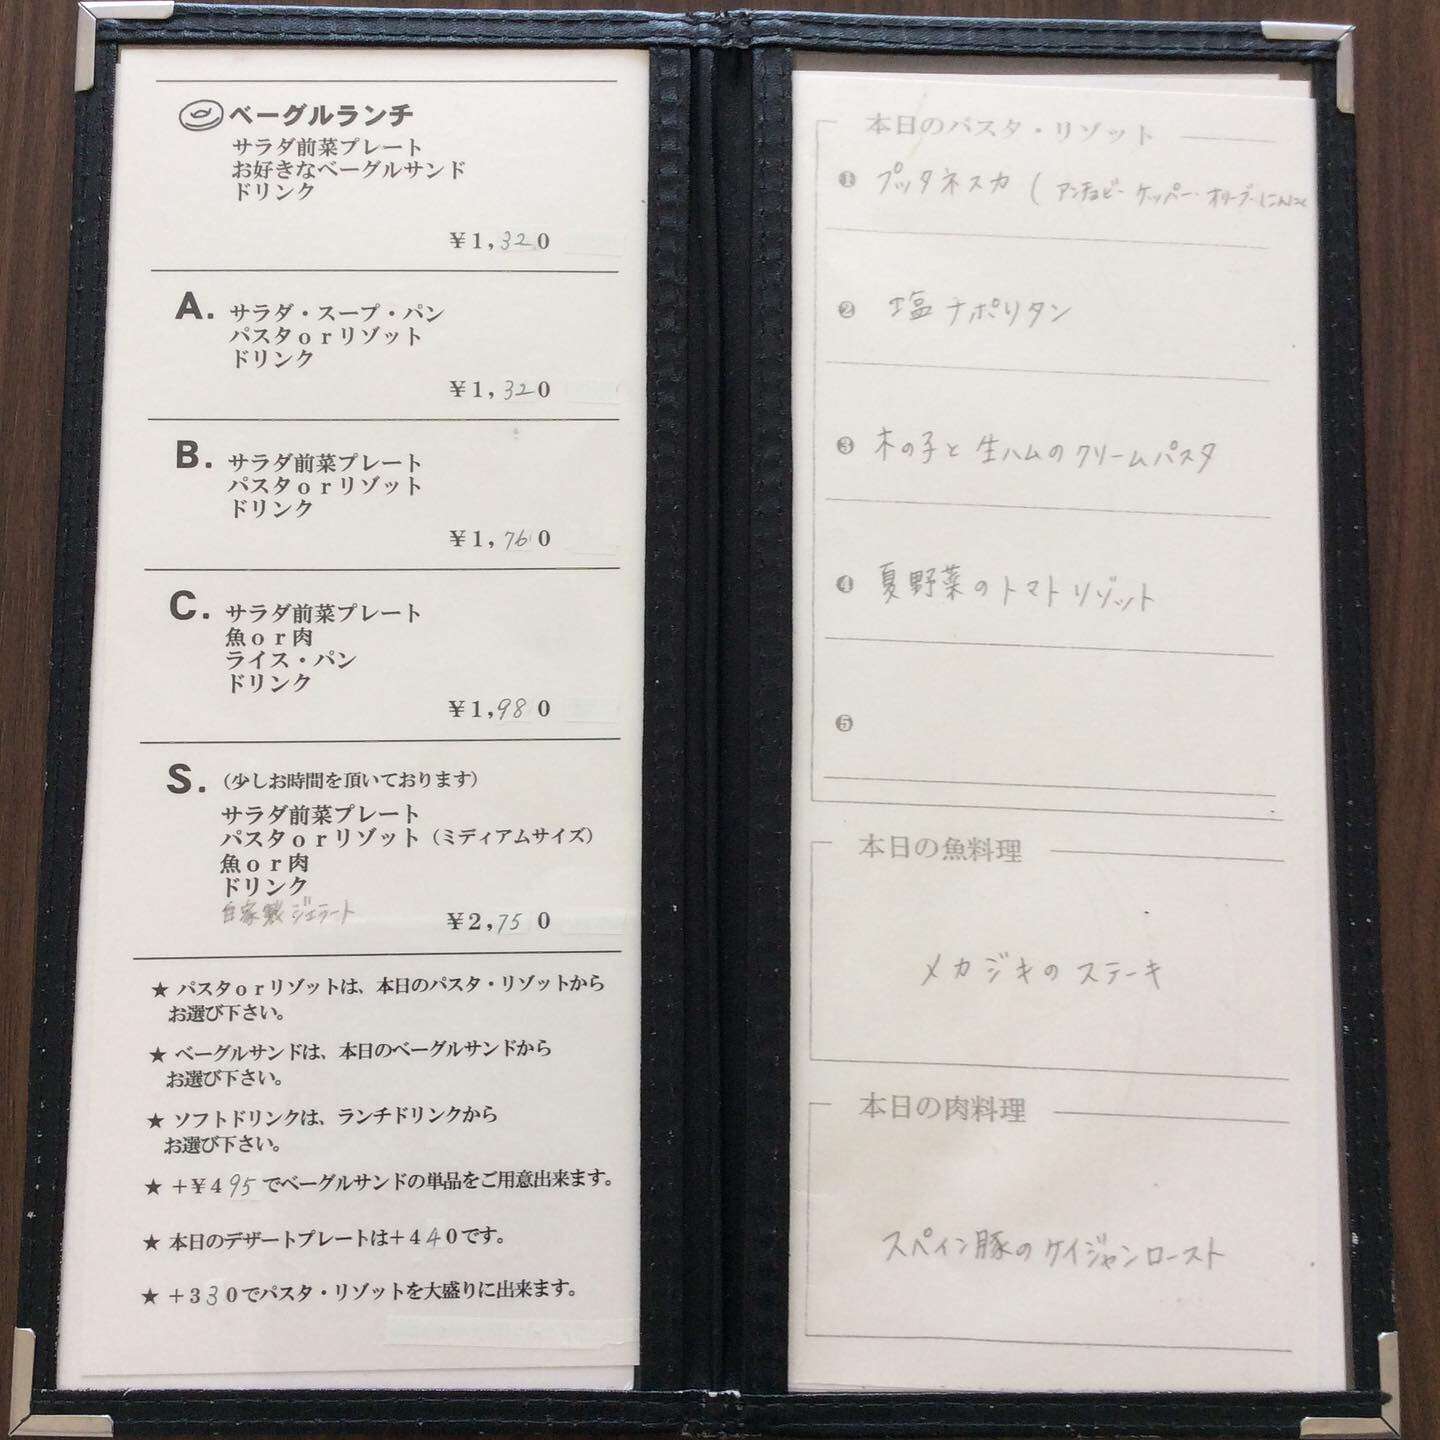 ベーグルランチ
サラダ前菜プレート
お好きなベーグルサンド
ドリンク
¥1,320
A. サラダ・スープ・パン
パスタorリゾット
ドリンク
¥1,320
B. サラダ前菜プレート
パスタorリゾット
ドリンク
¥1,760
C. サラダ前菜プレート
魚or肉
ライス・パン
ドリンク
¥1,980
S. (少しお時間を頂いております)
サラダ前菜プレート
パスタorリゾット(ミディアムサイズ)
魚or肉
ドリンク
自家製ジェラート ¥2,750
★ パスタorリゾットは、本日のパスタ・リゾットから
お選び下さい。
★ ベーグルサンドは、本日のベーグルサンドから
お選び下さい。
★ ソフトドリンクは、ランチドリンクから
お選び下さい。
★ +¥495でベーグルサンドの単品をご用意出来ます。
★ 本日のデザートプレートは+440です。
★ +330でパスタ・リゾットを大盛りに出来ます。
本日のパスタ・リゾット
❶ プッタネスカ (アンチョビー・ケッパー・オリーブ・にんにく
❷ 塩ナポリタン
❸ 木の子と生ハムのクリームパスタ
❹ 夏野菜のトマトリゾット
❺
本日の魚料理
メカジキのステーキ
本日の肉料理
スペイン豚のケイジャンロースト